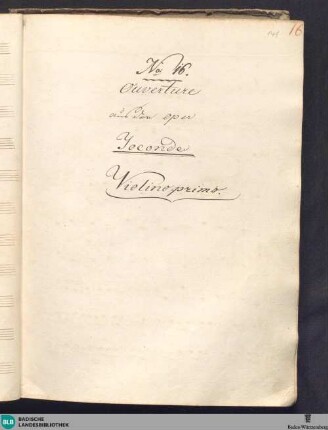 16
No 16.
Ouverture
aus der oper
Joconde
Violino primo.
BLB BADISCHE
LANDESBIBLIOTHEK
Baden-Württemberg